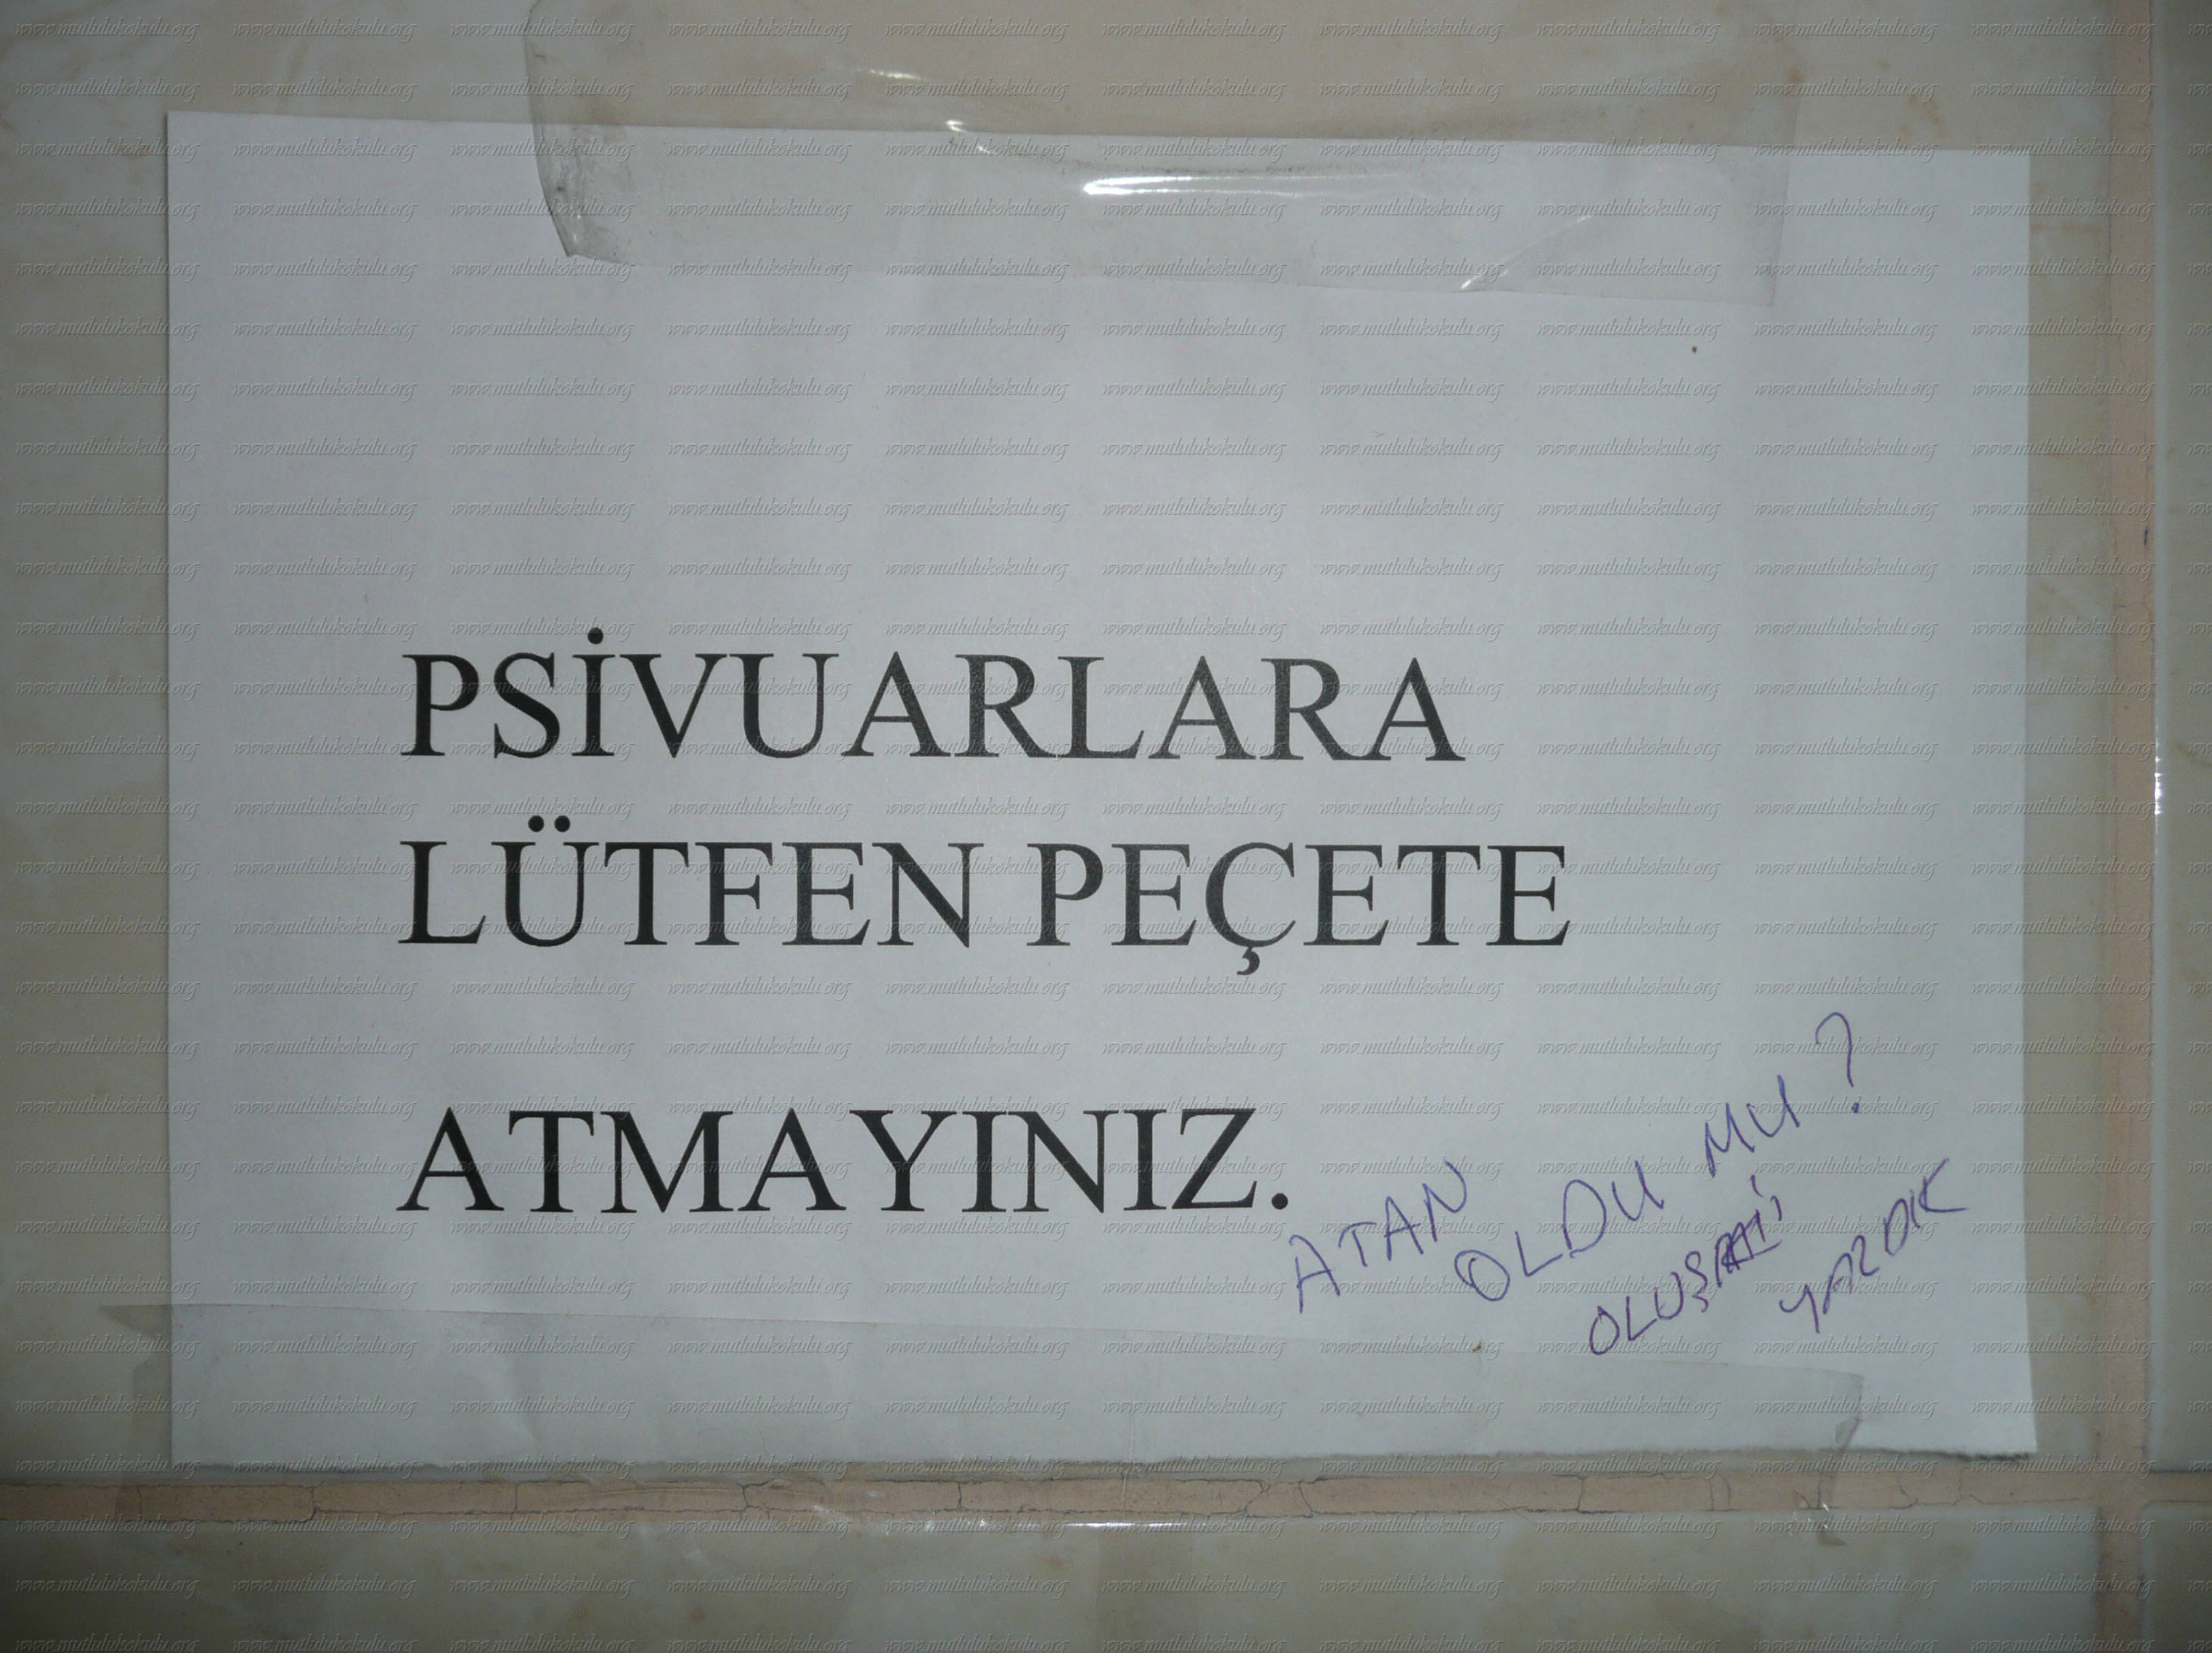 PSİVUARLARA
LÜTFEN PEÇETE
ATMAYINIZ.
ATAN OLDU MU?
YAZDIK
www.mutlulukokulu.org